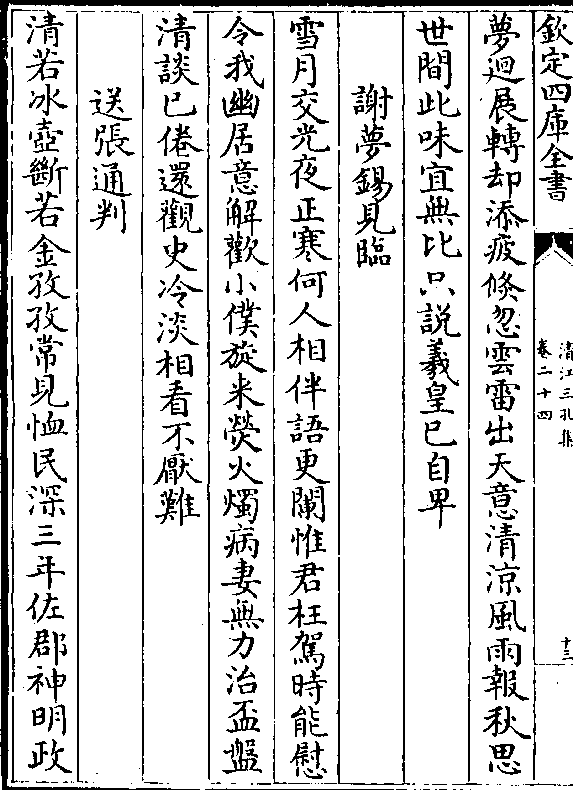 欽定四庫全書
清江三孔集
卷二十四
十三
夢迴展轉却添疲倐忽雲雷出天意清涼風雨報秋思
世間此味宜無比只說羲皇已自卑
謝夢錫見臨
雪月交光夜正寒何人相伴語更闌惟君枉駕時能慰
令我幽居意解歡小僕旋米熒火燭病妻無力治盃盤
清談已倦還觀史冷淡相看不厭難
送張通判
清若冰壺斷若金孜孜常見恤民深三年佐郡神明政